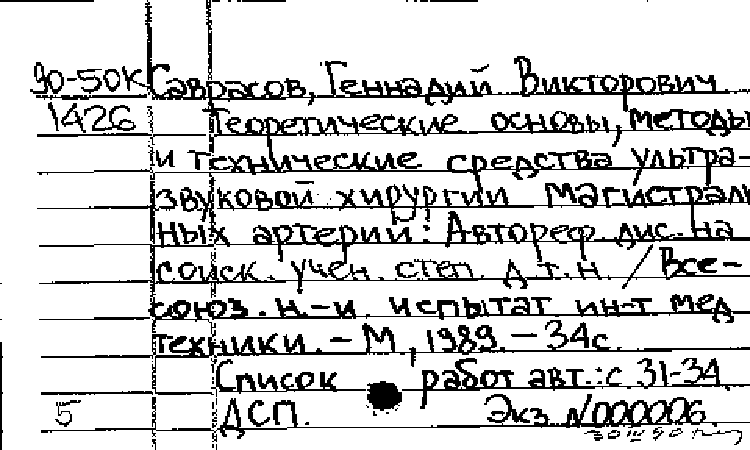 90-50К Саврасов, Геннадий Викторович
1426 Теоретические основы, методы
и технические средства ультра-
звуковой хирургии магистраль
ных артерий: Автореф. дис. на
соиск. учен. степ. д.т.н. / Все-
союз. н.-и. испытат ин-т мед
техники. - М, 1989. - 34с.
Список работ авт.: с. 31-34.
5 ДСП. Экз. N000006.